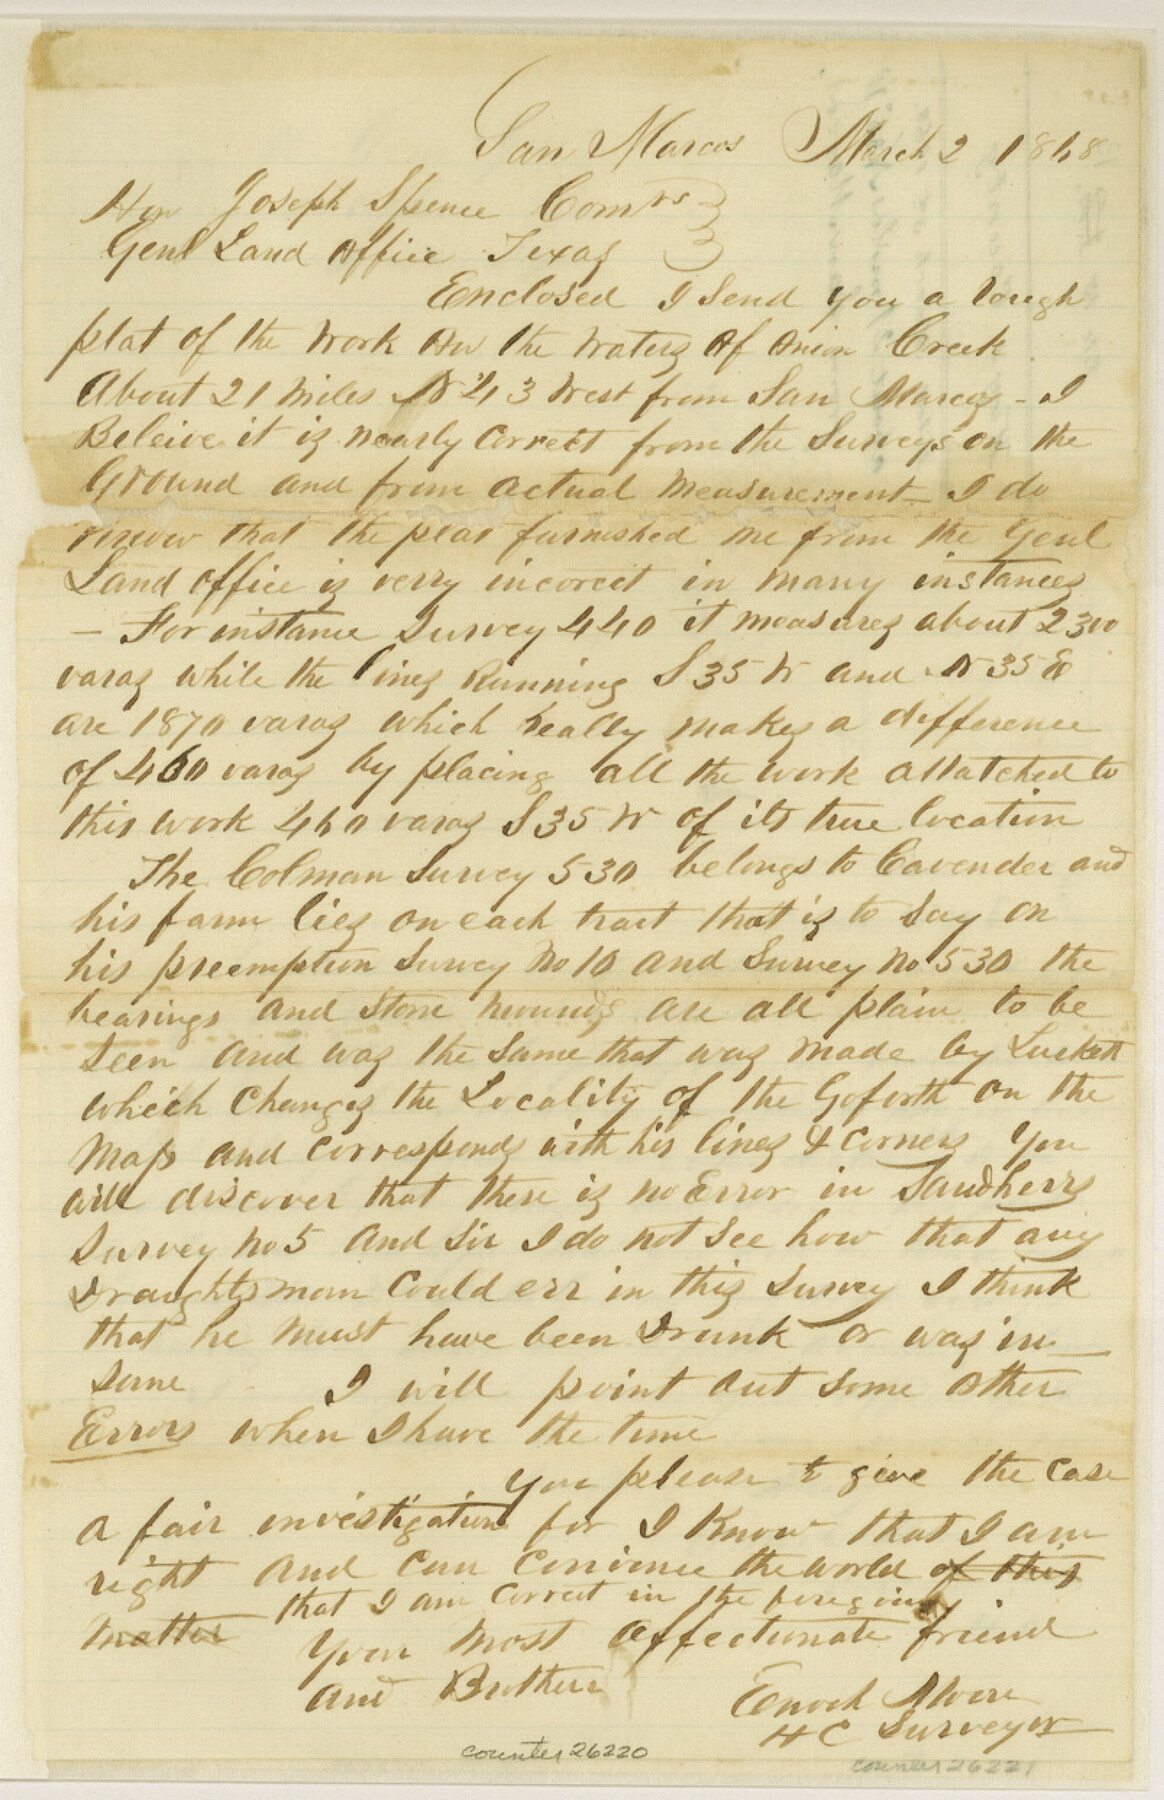 San Marcos March 2 1868
Hon Joseph Spence Comrs
Genl Land Office Texas
Enclosed I Send you a rough
plat of the work on the waters of Onion Creek
About 21 miles N 43 West from San Marcos - I
Beleive it is nearly Correct from the Surveys on the
Ground and from Actual Measurement - I do
know that the plat furnished me from the Genl
Land office is verry incorect in many instances
- For instance Survey 440 it measures about 2300
varas while the lines Running S 35 W and N 35 E
are 1870 varas which really makes a difference
of 460 varas by placing all the work attatched to
this work 460 varas S 35 W of its true location
The Colman Survey 530 belongs to Cavender and
his farm lies on each tract that is to say on
his preemption Survey No 10 and Survey No 530 the
bearings and Stone mounds are all plain to be
Seen and was the same that was made by Luckett
which Changes the Locality of the Goforth on the
Map and corresponds with his lines & corners You
will discover that there is no Error in Sandherrs
Survey No 5 and Sir I do not See how that any
Draughtsman Could err in this Survey I think
that he must have been Drunk or was in_
Sane I will point out some other
Errors when I have the time
You please to give the case
a fair investigation for I Know that I am
right and can Convince the world of this
that I am Correct in the foregoing
matter
Your most Affectionate friend
and Brother
Enoch Moore
H C Surveyor
counter 26220
counter 26221